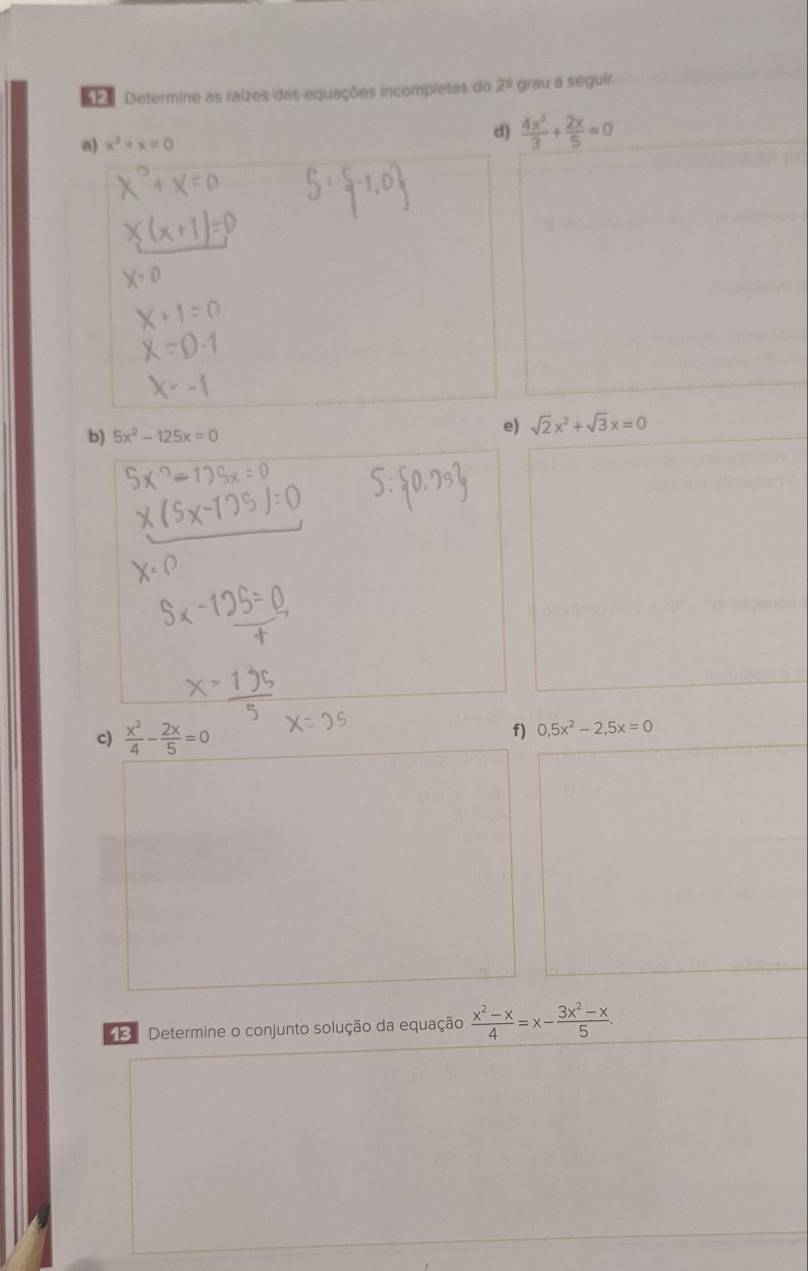 12 Determine as raízes das equações incompletas do 2º grau a seguir.
a) x² + x = 0
x² + x = 0
S: {-1,0}
x(x+1)=0
x=0
x+1=0
x=0-1
x=-1
b) 5x² − 125x = 0
5x²-125x=0
S: {0,25}
x(5x-125)=0
x=0
5x-125=0
x=125/5
x=25
c) x²/4 − 2x/5 = 0
d) 4x²/3 + 2x/5 = 0
e) √2x² + √3x = 0
f) 0,5x² − 2,5x = 0
13 Determine o conjunto solução da equação (x² − x)/4 = x − (3x² − x)/5.